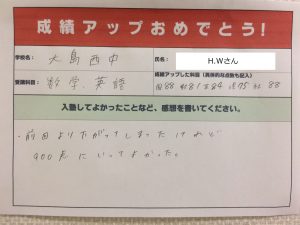 成績アップおめでとう!
学校名: 大島西中
氏名: H.Wさん
受講科目: 数学、英語
成績アップした科目(具体的な点数も記入)
国88 数81 英84 理75 社88
入塾してよかったことなど、感想を書いてください。
・前回より下がってしまったけれど
400点にいってよかった。